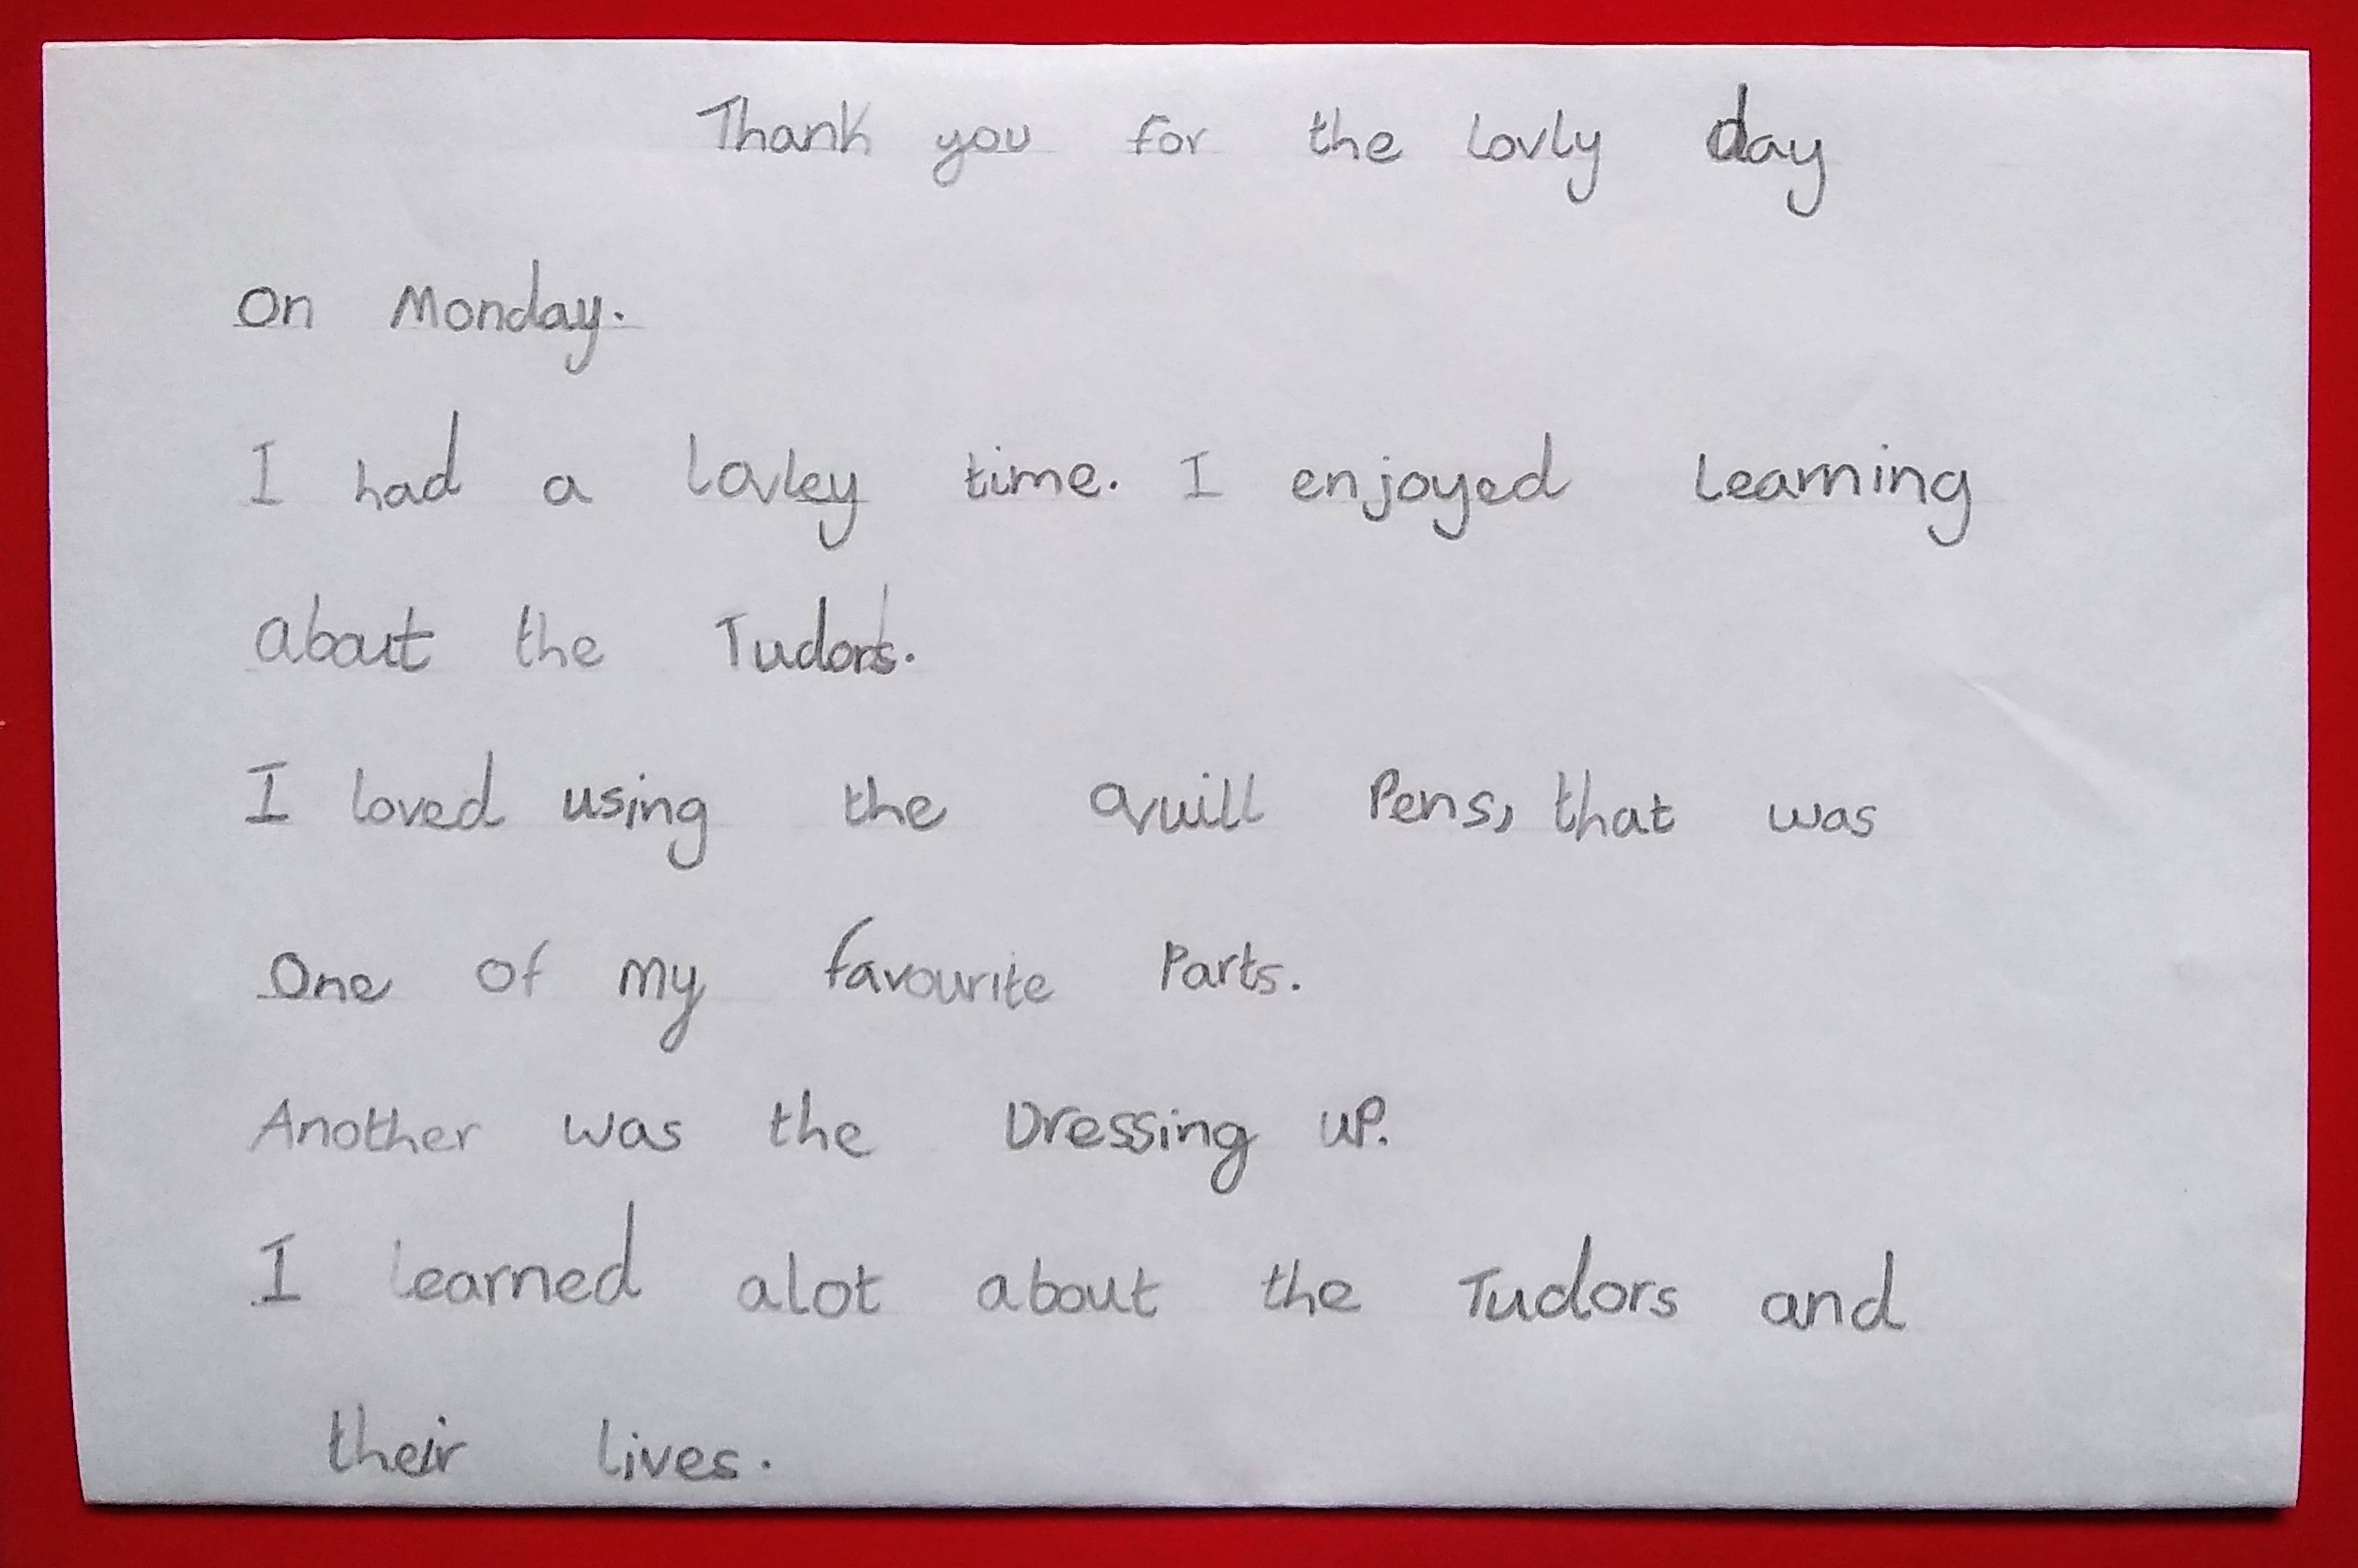 Thank you for the lovly day
on Monday.
I had a lovley time. I enjoyed learning
about the Tudors.
I loved using the quill Pens, that was
One of my favourite Parts.
Another was the Dressing up.
I learned alot about the Tudors and
their lives.